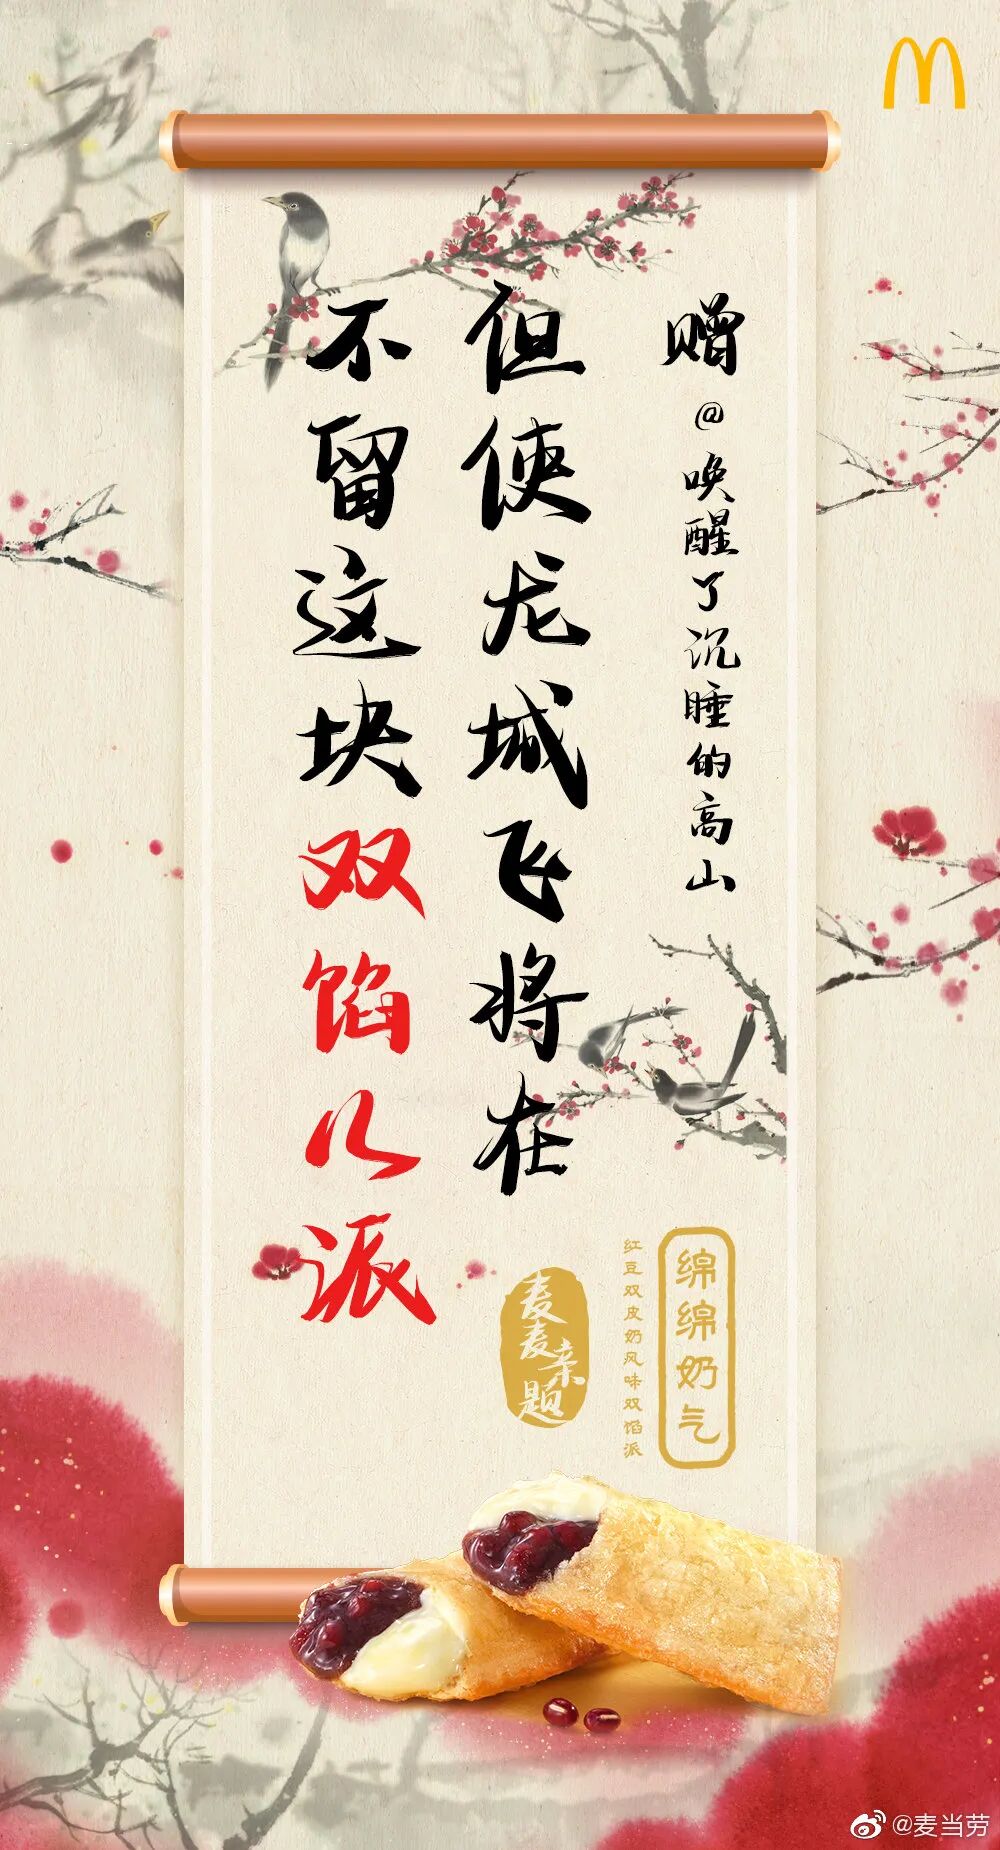 赠@唤醒了沉睡的高山
但使龙城飞将在
不留这块双馅儿派
绵绵奶气
红豆双皮奶风味双馅派
麦麦亲题
@麦当劳